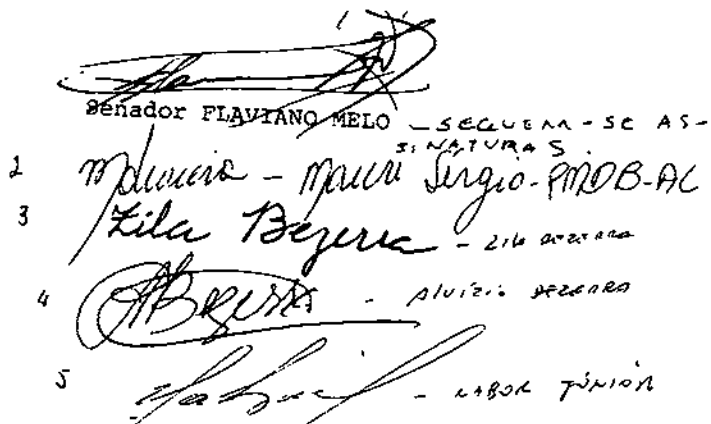 1
Senador FLAVIANO MELO - SEGUEM-SE AS-
SINATURAS
2 - Mauri Sérgio-PMDB-AC
3 Zila Bezerra - Zila BEZERRA
4 ABezerra - Aluízio BEZERRA
5 - NABOR JÚNIOR